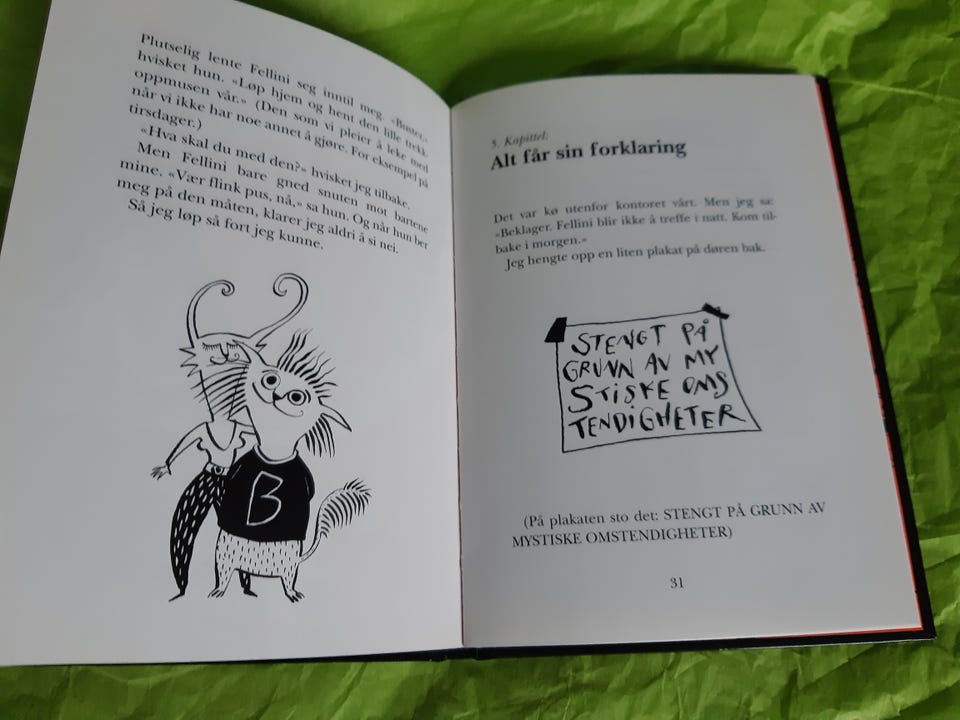 Plutselig lente Fellini seg inntil meg. «Buster,»
hvisket hun. «Løp hjem og hent den lille trekk-
oppmusen vår.» (Den som vi pleier å leke med
når vi ikke har noe annet å gjøre. For eksempel på
tirsdager.)
«Hva skal du med den?» hvisket jeg tilbake.
Men Fellini bare gned snuten mot bartene
mine. «Vær flink pus, nå,» sa hun. Og når hun ber
meg på den måten, klarer jeg aldri å si nei.
Så jeg løp så fort jeg kunne.
B
5. Kapittel:
Alt får sin forklaring
Det var kø utenfor kontoret vårt. Men jeg sa:
«Beklager. Fellini blir ikke å treffe i natt. Kom til-
bake i morgen.»
Jeg hengte opp en liten plakat på døren bak.
STENGT PÅ
GRUNN AV MY
STISKE OMS
TENDIGHETER
(På plakaten sto det: STENGT PÅ GRUNN AV
MYSTISKE OMSTENDIGHETER)
31